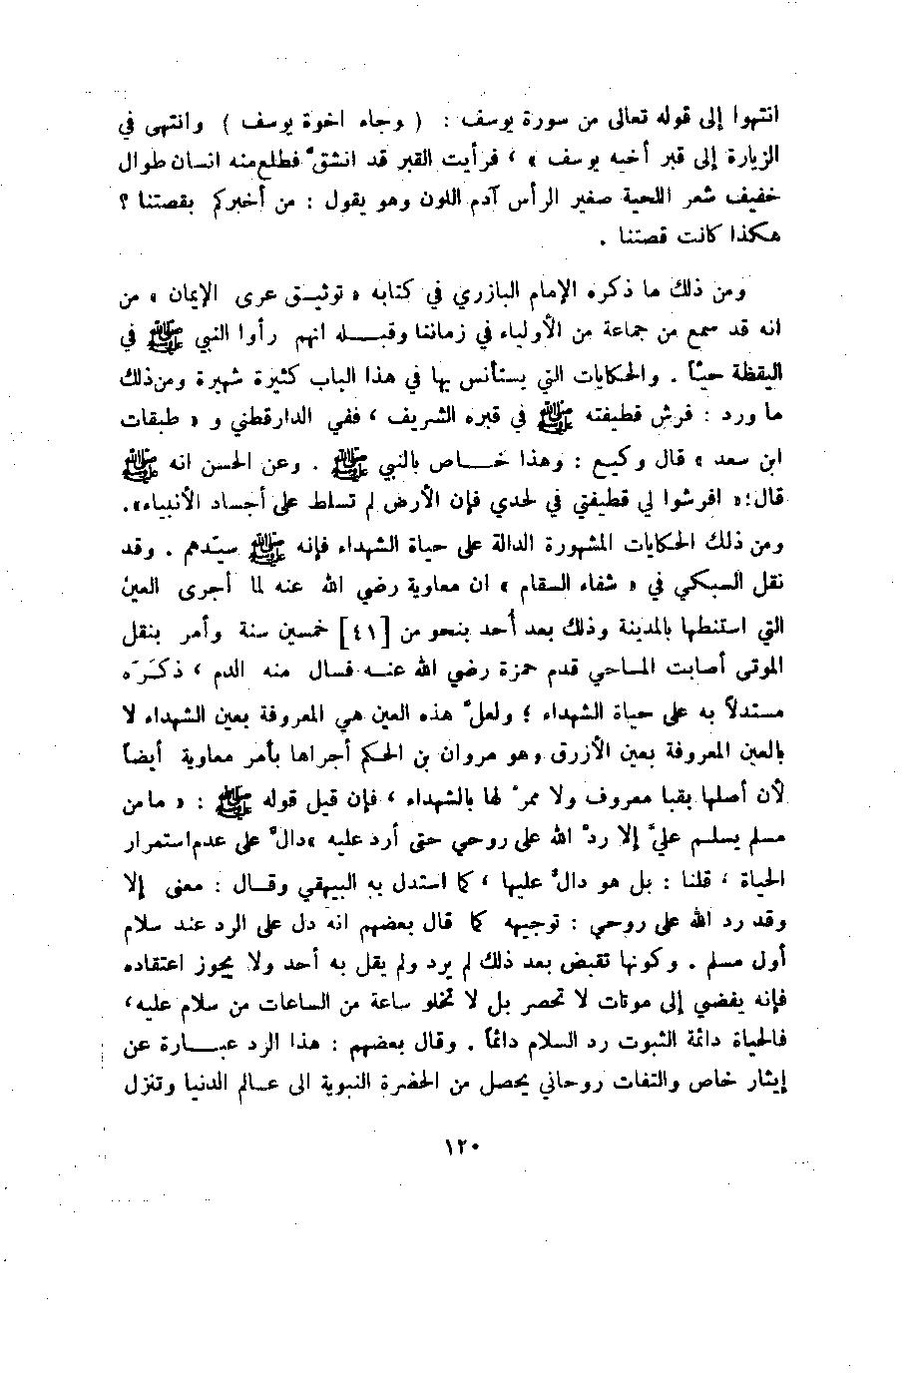 انتهوا إلى قوله تعالى من سورة يوسف : ( وجاء اخوة يوسف ) وانتهى في
الزيارة إلى قبر أخيه يوسف » ، فرأيت القبر قد انشقّ فطلع منه انسان طوال
خفيف شعر اللحية صغير الرأس آدم اللون وهو يقول : من أخبركم بقصتنا ؟
هكذا كانت قصتنا .
ومن ذلك ما ذكره الإمام البازري في كتابه « توثيق عرى الإيمان » من
انه قد سمع من جماعة من الأولياء في زماننا وقبله انهم رأوا النبي ﷺ في
اليقظة حيّاً . والحكايات التي يستأنس بها في هذا الباب كثيرة شهيرة ومن ذلك
ما ورد : فرش قطيفته ﷺ في قبره الشريف ، ففي الدارقطني و « طبقات
ابن سعد » قال وكيع : وهذا خاص بالنبي ﷺ . وعن الحسن انه ﷺ
قال : « افرشوا لي قطيفتي في لحدي فإن الأرض لم تسلط على أجساد الأنبياء ».
ومن ذلك الحكايات المشهورة الدالة على حياة الشهداء فإنه ﷺ سيّدهم . وقد
نقل السبكي في « شفاء السقام » ان معاوية رضي الله عنه لما أجرى العين
التي استنطها بالمدينة وذلك بعد أُحد بنحو من [٤١] خمسين سنة وأمر بنقل
الموتى أصابت المساحي قدم حمزة رضي الله عنه فسال منه الدم ، ذكَرَه
مستدلاً به على حياة الشهداء ؛ ولعلّ هذه العين هي المعروفة بعين الشهداء لا
بالعين المعروفة بعين الأزرق وهو مروان بن الحكم أجراها بأمر معاوية أيضاً
لأن أصلها بقبا معروف ولا ممرّ لها بالشهداء ، فإن قيل قوله ﷺ : « ما من
مسلم يسلم عليّ إلا ردّ الله على روحي حتى أرد عليه » دالّ على عدم استمرار
الحياة ، قلنا : بل هو دالّ عليها ، كما استدل به البيهقي وقال : معنى إلا
وقد رد الله على روحي : توجيهه كما قال بعضهم انه دل على الرد عند سلام
أول مسلم . وكونها تقبض بعد ذلك لم يرد ولم يقل به أحد ولا يجوز اعتقاده
فإنه يفضي إلى موتات لا تحصر بل لا تخلو ساعة من الساعات من سلام عليه ،
فالحياة دائمة الثبوت رد السلام دائماً . وقال بعضهم : هذا الرد عبارة عن
إيثار خاص والتفات روحاني يحصل من الحضرة النبوية الى عالم الدنيا وتنزل
١٢٠